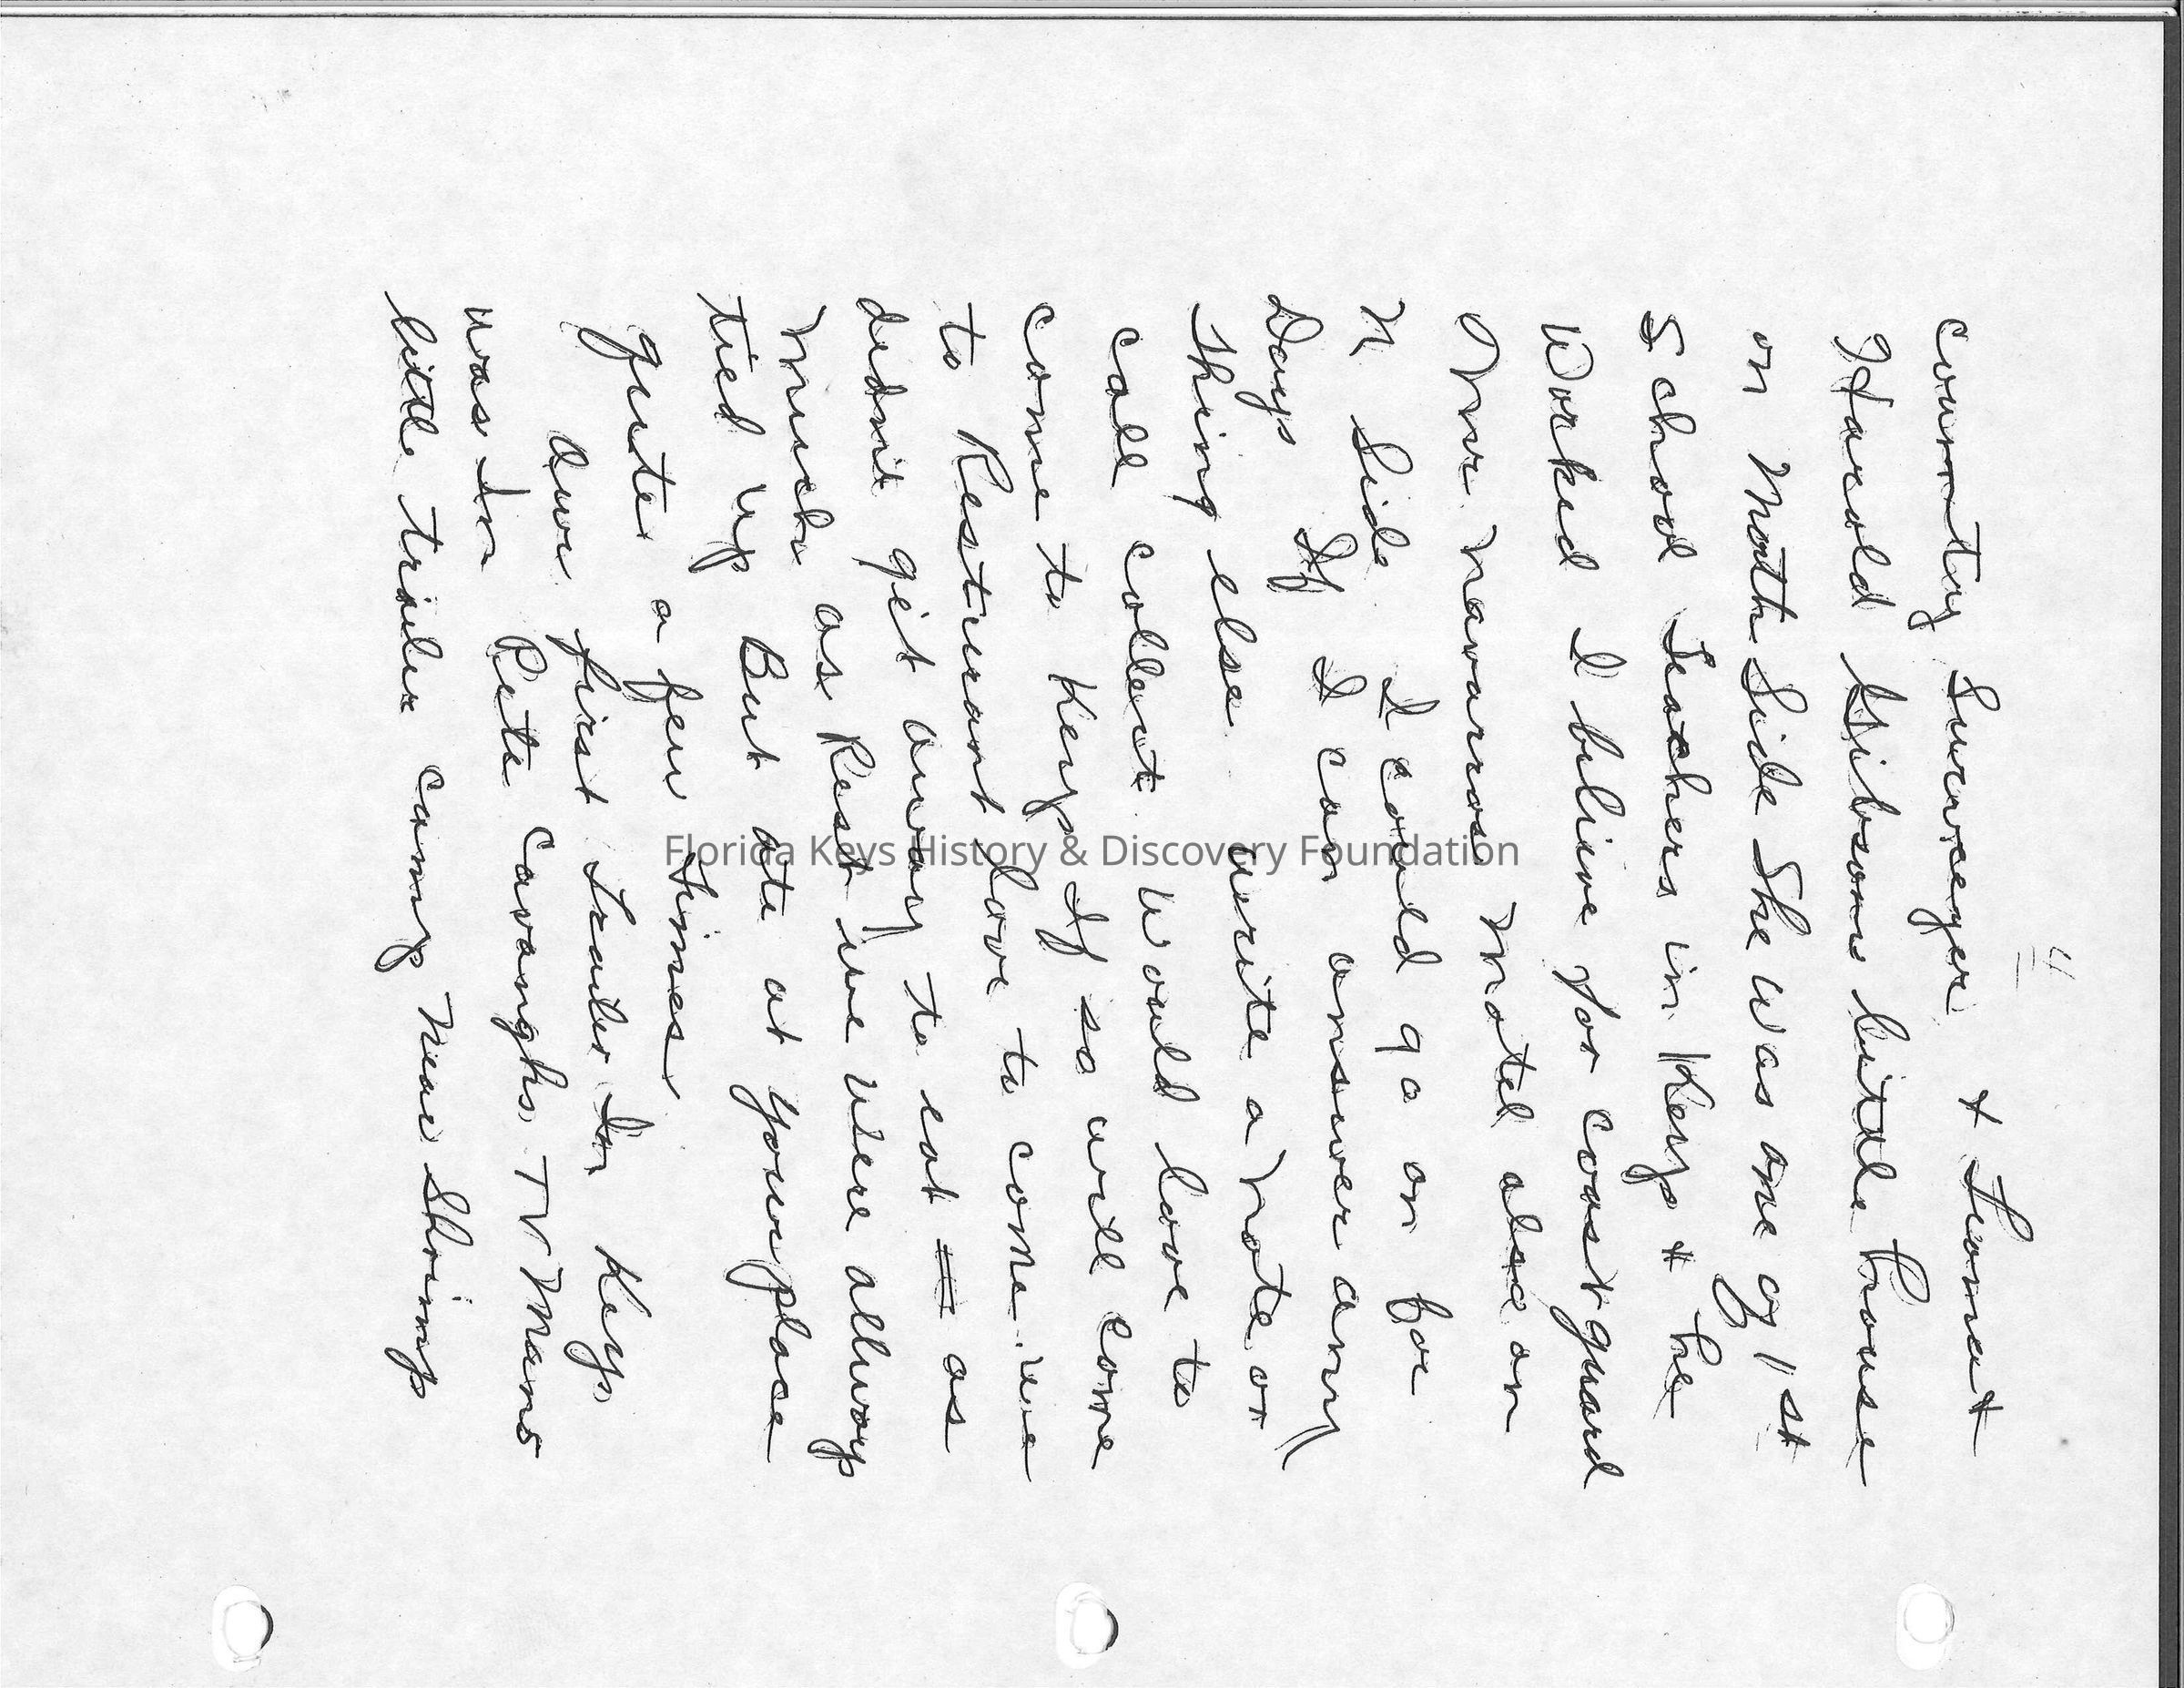 4
county Surveyer + Lionel +
Harold Gibsons little house
on North Side She was one of 1st
School Teachers in Keys + he
Worked I belive for coast guard
Our navarros motel also on
N Side I could go on for
Days If I can answer any
thing else write a note or
call collect would love to
come to Keys If so will come
to Resturant love to come we
didnt git away to eat as
much as Rest we were allways
tied up But ate at your place
quite a few times
Our first Trailer In Keys
was In Pete Cavanghs TV Mans
little trailer camp near Shrimp
Florida Keys History & Discovery Foundation